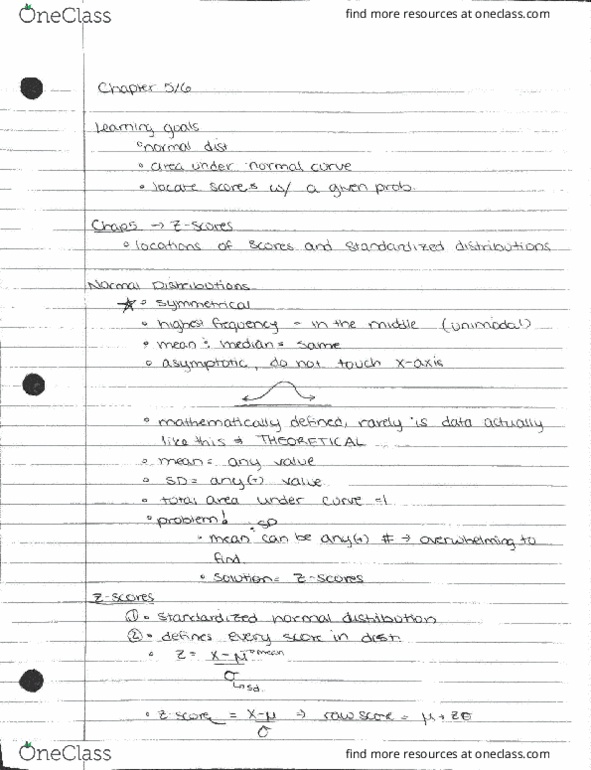 OneClass
find more resources at oneclass.com
Chapter 5/6
Learning goals
◦ normal dist
◦ area under normal curve
◦ locate scores w/ a given prob.
Chap5 → Z-scores
◦ locations of scores and standardized distributions
Normal Distributions
☆ ◦ symmetrical
◦ highest frequency - in the middle (unimodal)
◦ mean ÷ median = same
◦ asymptotic, do not touch x-axis
◦ mathematically defined, rarely is data actually
like this → THEORETICAL
◦ mean = any value
◦ SD = any (+) value
◦ total area under curve = 1
◦ problem!
, SD
◦ mean can be any (+) # → overwhelming to
find.
◦ solution = Z-scores
Z-scores
① ◦ standardized normal distribution
② ◦ defines every score in dist.
◦ Z = X - μ → mean
σ
↳ sd.
◦ Z-score = X-μ ⇒ raw score = μ + zσ
σ
OneClass
find more resources at oneclass.com